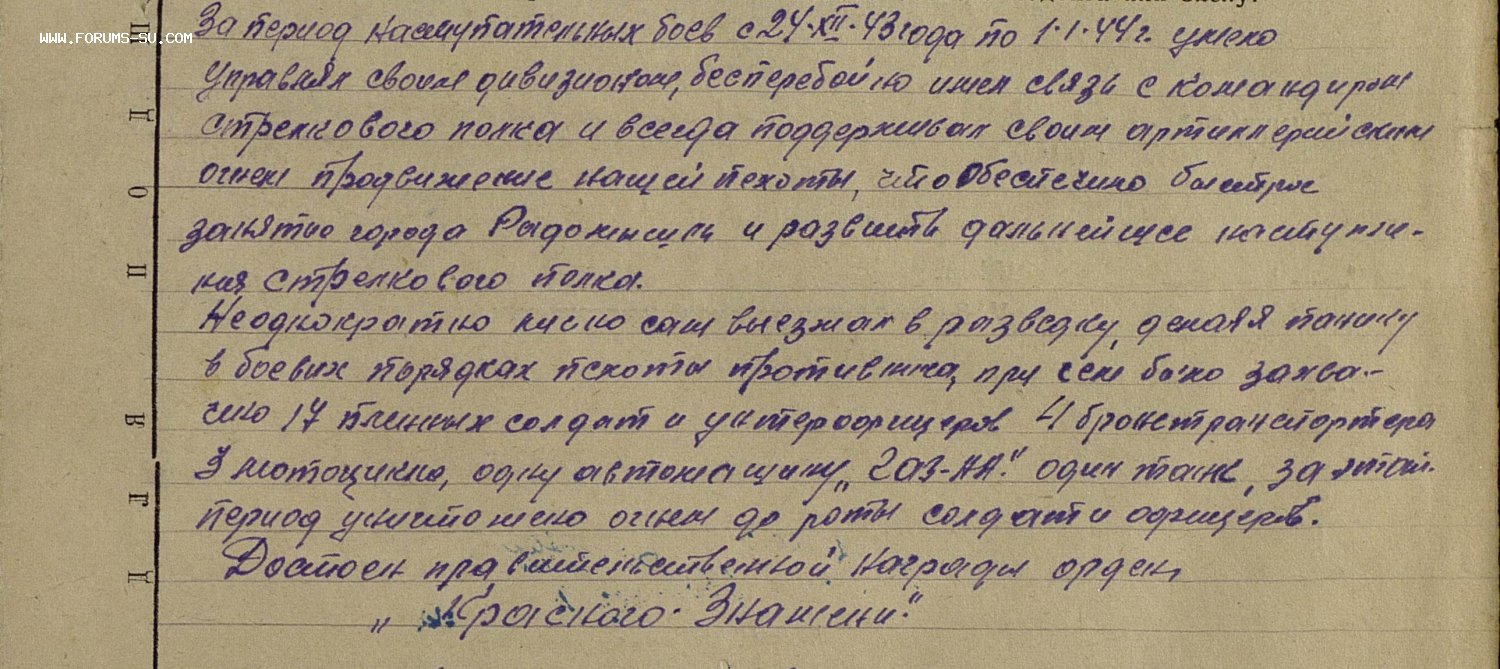 WWW.FORUMS-SU.COM
За период наступательных боев с 24.XII.43 года по 1.1.44 г. умело
управлял своим дивизионом, бесперебойно имел связь с командиром
стрелкового полка и всегда поддерживал своим артиллерийским
огнем продвижение нашей пехоты, что обеспечило быстрое
занятие города Радомышль и развить дальнейшее наступле-
ния стрелкового полка.
Неоднократно лично сам выезжал в разведку, делая панику
в боевых порядках пехоты противника, при чем было захва-
чено 17 пленных солдат и унтерофицеров 4 бронетранспортера
3 мотоцикла, одну автомашину „ГАЗ-АА." один танк, за этот
период уничтожено огнем до роты солдат и офицеров.
Достоен правительственной награды орден
„Красного Знамени."